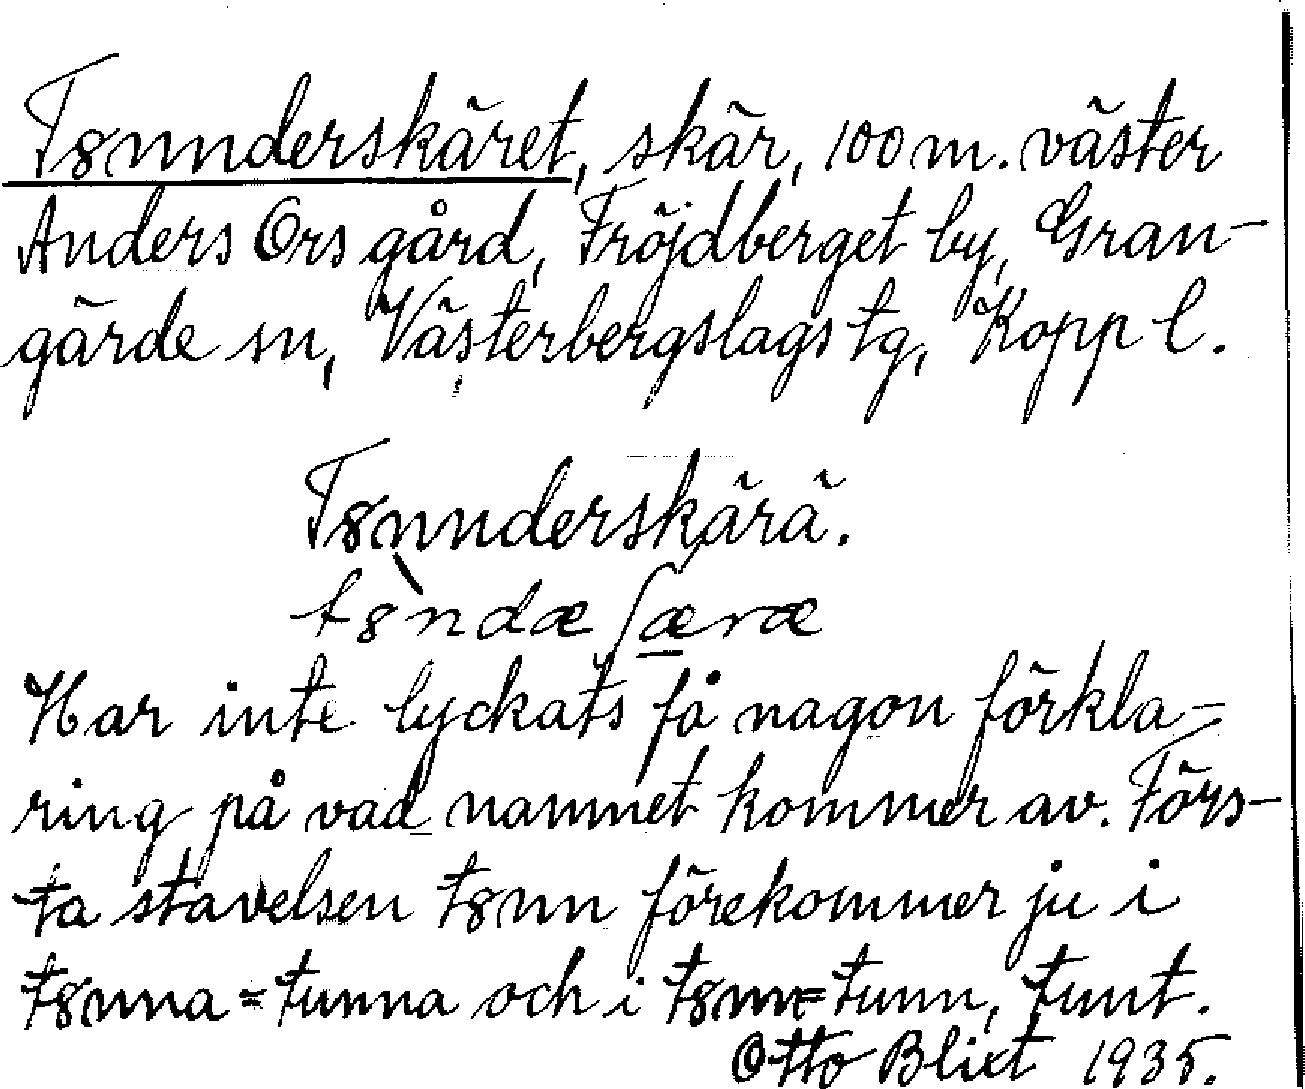 Tȣnnderskäret, skär, 100 m. väster
Anders Ors gård, Fröjdberget by, Gran-
gärde sn, Västerbergslags tg, Kopp l.
Tȣnnderskärä.
tȣ̀ndæʃæræ
Har inte lyckats få nagon förkla-
ring på vad namnet kommer av. Förs-
ta stavelsen tȣnn förekommer ju i
tȣnna = tunna och i tȣnn = tunn, tunt.
Otto Blixt 1935.